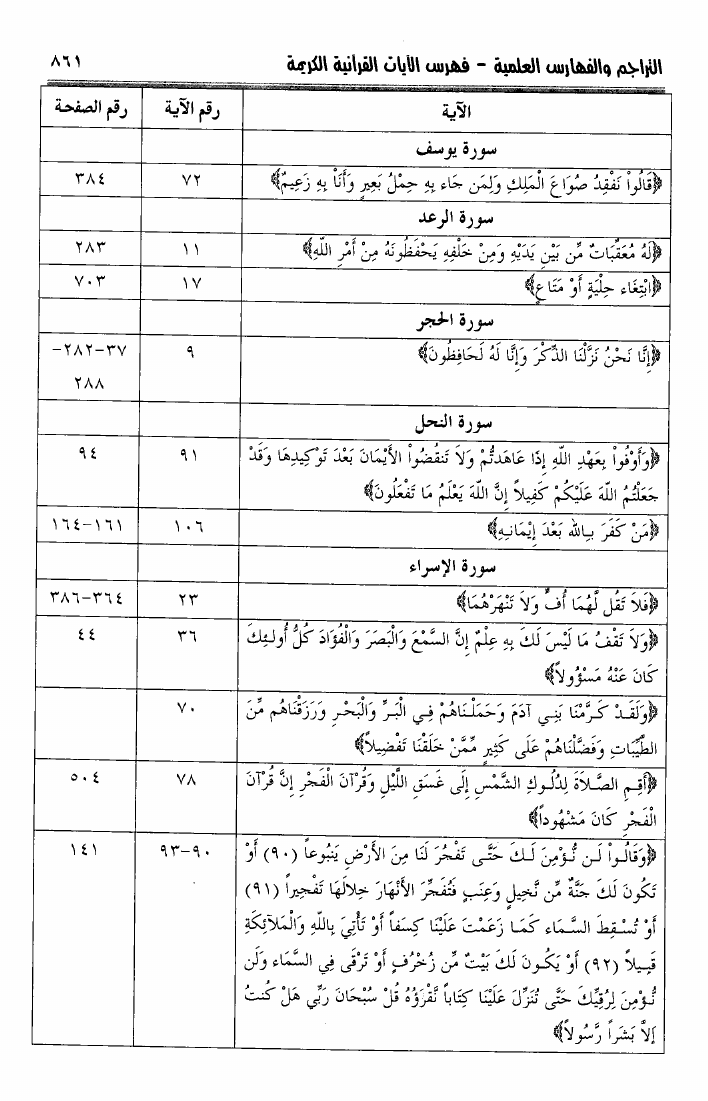 التراجم والفهارس العلمية - فهرس الآيات القرآنية الكريمة ٨٦١
الآية رقم الآية رقم الصفحة
سورة يوسف
﴿قَالُواْ نَفْقِدُ صُوَاعَ الْمَلِكِ وَلِمَن جَاء بِهِ حِمْلُ بَعِيرٍ وَأَنَاْ بِهِ زَعِيمٌ﴾ ٧٢ ٣٨٤
سورة الرعد
﴿لَهُ مُعَقِّبَاتٌ مِّن بَيْنِ يَدَيْهِ وَمِنْ خَلْفِهِ يَحْفَظُونَهُ مِنْ أَمْرِ اللّهِ﴾ ١١ ٢٨٣
﴿ابْتِغَاء حِلْيَةٍ أَوْ مَتَاعٍ﴾ ١٧ ٧٠٣
سورة الحجر
﴿إِنَّا نَحْنُ نَزَّلْنَا الذِّكْرَ وَإِنَّا لَهُ لَحَافِظُونَ﴾ ٩ ٣٧-٢٨٢-
٢٨٨
سورة النحل
﴿وَأَوْفُواْ بِعَهْدِ اللّهِ إِذَا عَاهَدتُّمْ وَلاَ تَنقُضُواْ الأَيْمَانَ بَعْدَ تَوْكِيدِهَا وَقَدْ ٩١ ٩٤
جَعَلْتُمُ اللّهَ عَلَيْكُمْ كَفِيلاً إِنَّ اللّهَ يَعْلَمُ مَا تَفْعَلُونَ﴾
﴿مَنْ كَفَرَ بِالله بَعْدَ إِيْمَانِهِ﴾ ١٠٦ ١٦١-١٦٤
سورة الإسراء
﴿فَلاَ تَقُل لَّهُمَا أُفٍّ وَلاَ تَنْهَرْهُمَا﴾ ٢٣ ٣٦٤-٣٨٦
﴿وَلاَ تَقْفُ مَا لَيْسَ لَكَ بِهِ عِلْمٌ إِنَّ السَّمْعَ وَالْبَصَرَ وَالْفُؤَادَ كُلُّ أُولـئِكَ ٣٦ ٤٤
كَانَ عَنْهُ مَسْؤُولاً﴾
﴿وَلَقَدْ كَرَّمْنَا بَنِي آدَمَ وَحَمَلْنَاهُمْ فِي الْبَرِّ وَالْبَحْرِ وَرَزَقْنَاهُم مِّنَ ٧٠
الطَّيِّبَاتِ وَفَضَّلْنَاهُمْ عَلَى كَثِيرٍ مِّمَّنْ خَلَقْنَا تَفْضِيلاً﴾
﴿أَقِمِ الصَّلاَةَ لِدُلُوكِ الشَّمْسِ إِلَى غَسَقِ اللَّيْلِ وَقُرْآنَ الْفَجْرِ إِنَّ قُرْآنَ ٧٨ ٥٠٤
الْفَجْرِ كَانَ مَشْهُوداً﴾
﴿وَقَالُواْ لَن نُّؤْمِنَ لَكَ حَتَّى تَفْجُرَ لَنَا مِنَ الأَرْضِ يَنبُوعاً (٩٠) أَوْ ٩٠-٩٣ ١٤١
تَكُونَ لَكَ جَنَّةٌ مِّن نَّخِيلٍ وَعِنَبٍ فَتُفَجِّرَ الأَنْهَارَ خِلالَهَا تَفْجِيراً (٩١)
أَوْ تُسْقِطَ السَّمَاء كَمَا زَعَمْتَ عَلَيْنَا كِسَفاً أَوْ تَأْتِيَ بِاللّهِ وَالْمَلآئِكَةِ
قَبِيلاً (٩٢) أَوْ يَكُونَ لَكَ بَيْتٌ مِّن زُخْرُفٍ أَوْ تَرْقَى فِي السَّمَاء وَلَن
نُّؤْمِنَ لِرُقِيِّكَ حَتَّى تُنَزِّلَ عَلَيْنَا كِتَاباً نَّقْرَؤُهُ قُلْ سُبْحَانَ رَبِّي هَلْ كُنتُ
إَلاَّ بَشَراً رَّسُولاً﴾